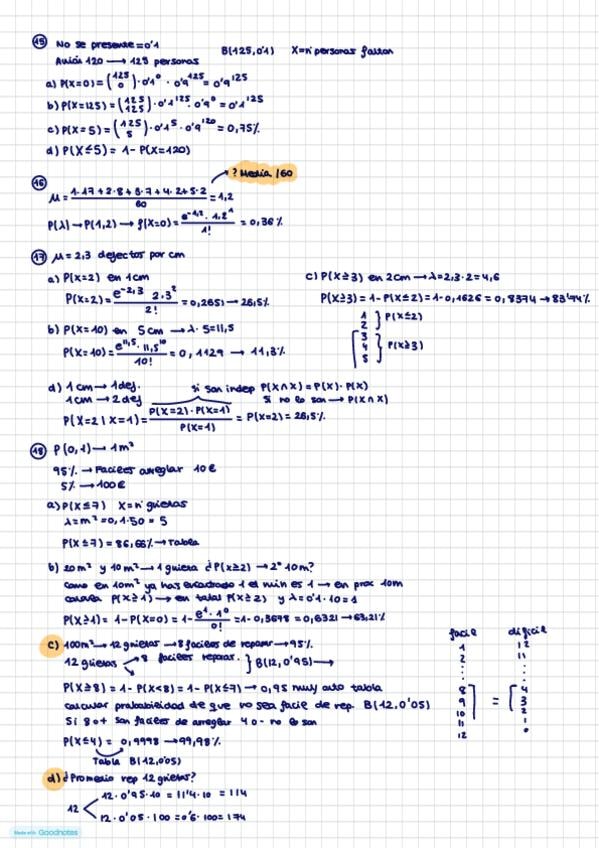 15 No se presente = 0'1 B(125,0'1) X = nº personas faltan
Avión 120 → 125 personas
a) P(X=0) = (125 0) · 0'1⁰ · 0'9¹²⁵ = 0'9¹²⁵
b) P(X=125) = (125 125) · 0'1¹²⁵ · 0'9⁰ = 0'1¹²⁵
c) P(X=5) = (125 5) · 0'1⁵ · 0'9¹²⁰ = 0,75%
d) P(X≤5) = 1 - P(X=120)
? Media /60
16 μ = (1·17 + 2·8 + 5·7 + 4·2 + 5·2)/60 = 1,2
P(λ) → P(1,2) → f(X=0) = (e^-1,2 · 1,2¹)/1! = 0,36%
17 μ = 2,3 defectos por cm
a) P(X=2) en 1cm
P(X=2) = (e^-2,3 2,3²)/2! = 0,2651 → 26,5%
b) P(X=10) en 5cm → λ·5 = 11,5
P(X=10) = (e^11,5 · 11,5¹⁰)/10! = 0,1129 → 11,3%
c) P(X≥3) en 2cm → λ = 2,3·2 = 4,6
P(X≥3) = 1 - P(X≤2) = 1 - 0,1626 = 0,8374 → 83'74%
1
2 } P(X≤2)
3
4
5 } P(X≥3)
d) 1cm → 1 def. si son indep P(X∩X) = P(X)·P(X)
1cm → 2 def si no lo son → P(X∩X)
P(X=2 | X=1) = (P(X=2)·P(X=1))/P(X=1) = P(X=2) = 26,5%
18 P(0,1) → 1m²
95% → Faciles arreglar 10€
5% → 100€
a) P(X≤7) X = nº grietas
λ = m² = 0,1·50 = 5
P(X≤7) = 86,66% → Tabla
b) 20m² y 10m² → 1 grieta ¿P(X≥2) → 2º 10m?
como en 10m² ya has encontrado 1 el min es 1 → en prox 10m
P(X≥1) → en total P(X≥2) y λ = 0'1·10 = 1
P(X≥1) = 1 - P(X=0) = 1 - (e¹·1⁰)/0! = 1 - 0,3678 = 0,6321 → 63,21%
c) 100m² → 12 grietas → 8 faciles de reparar → 95%
12 grietas 8 faciles reparar. } B(12,0'95) →
P(X≥8) = 1 - P(X<8) = 1 - P(X≤7) → 0,95 muy alto tabla
calcular probabilidad de que no sea facil de rep. B(12,0'05)
Si 8 o + son faciles de arreglar 4 o - no lo son
P(X≤4) = 0,9998 → 99,98%
Tabla B(12,0'05)
facil dificil
1 12
2 11
· ·
· ·
8 4
9 = 3
10 2
11 ·
12 0
d) ¿Promedio rep 12 grietas?
12 12·0'95·10 = 11'4·10 = 114
12·0'05·100 = 0'6·100 = 174
Made with Goodnotes